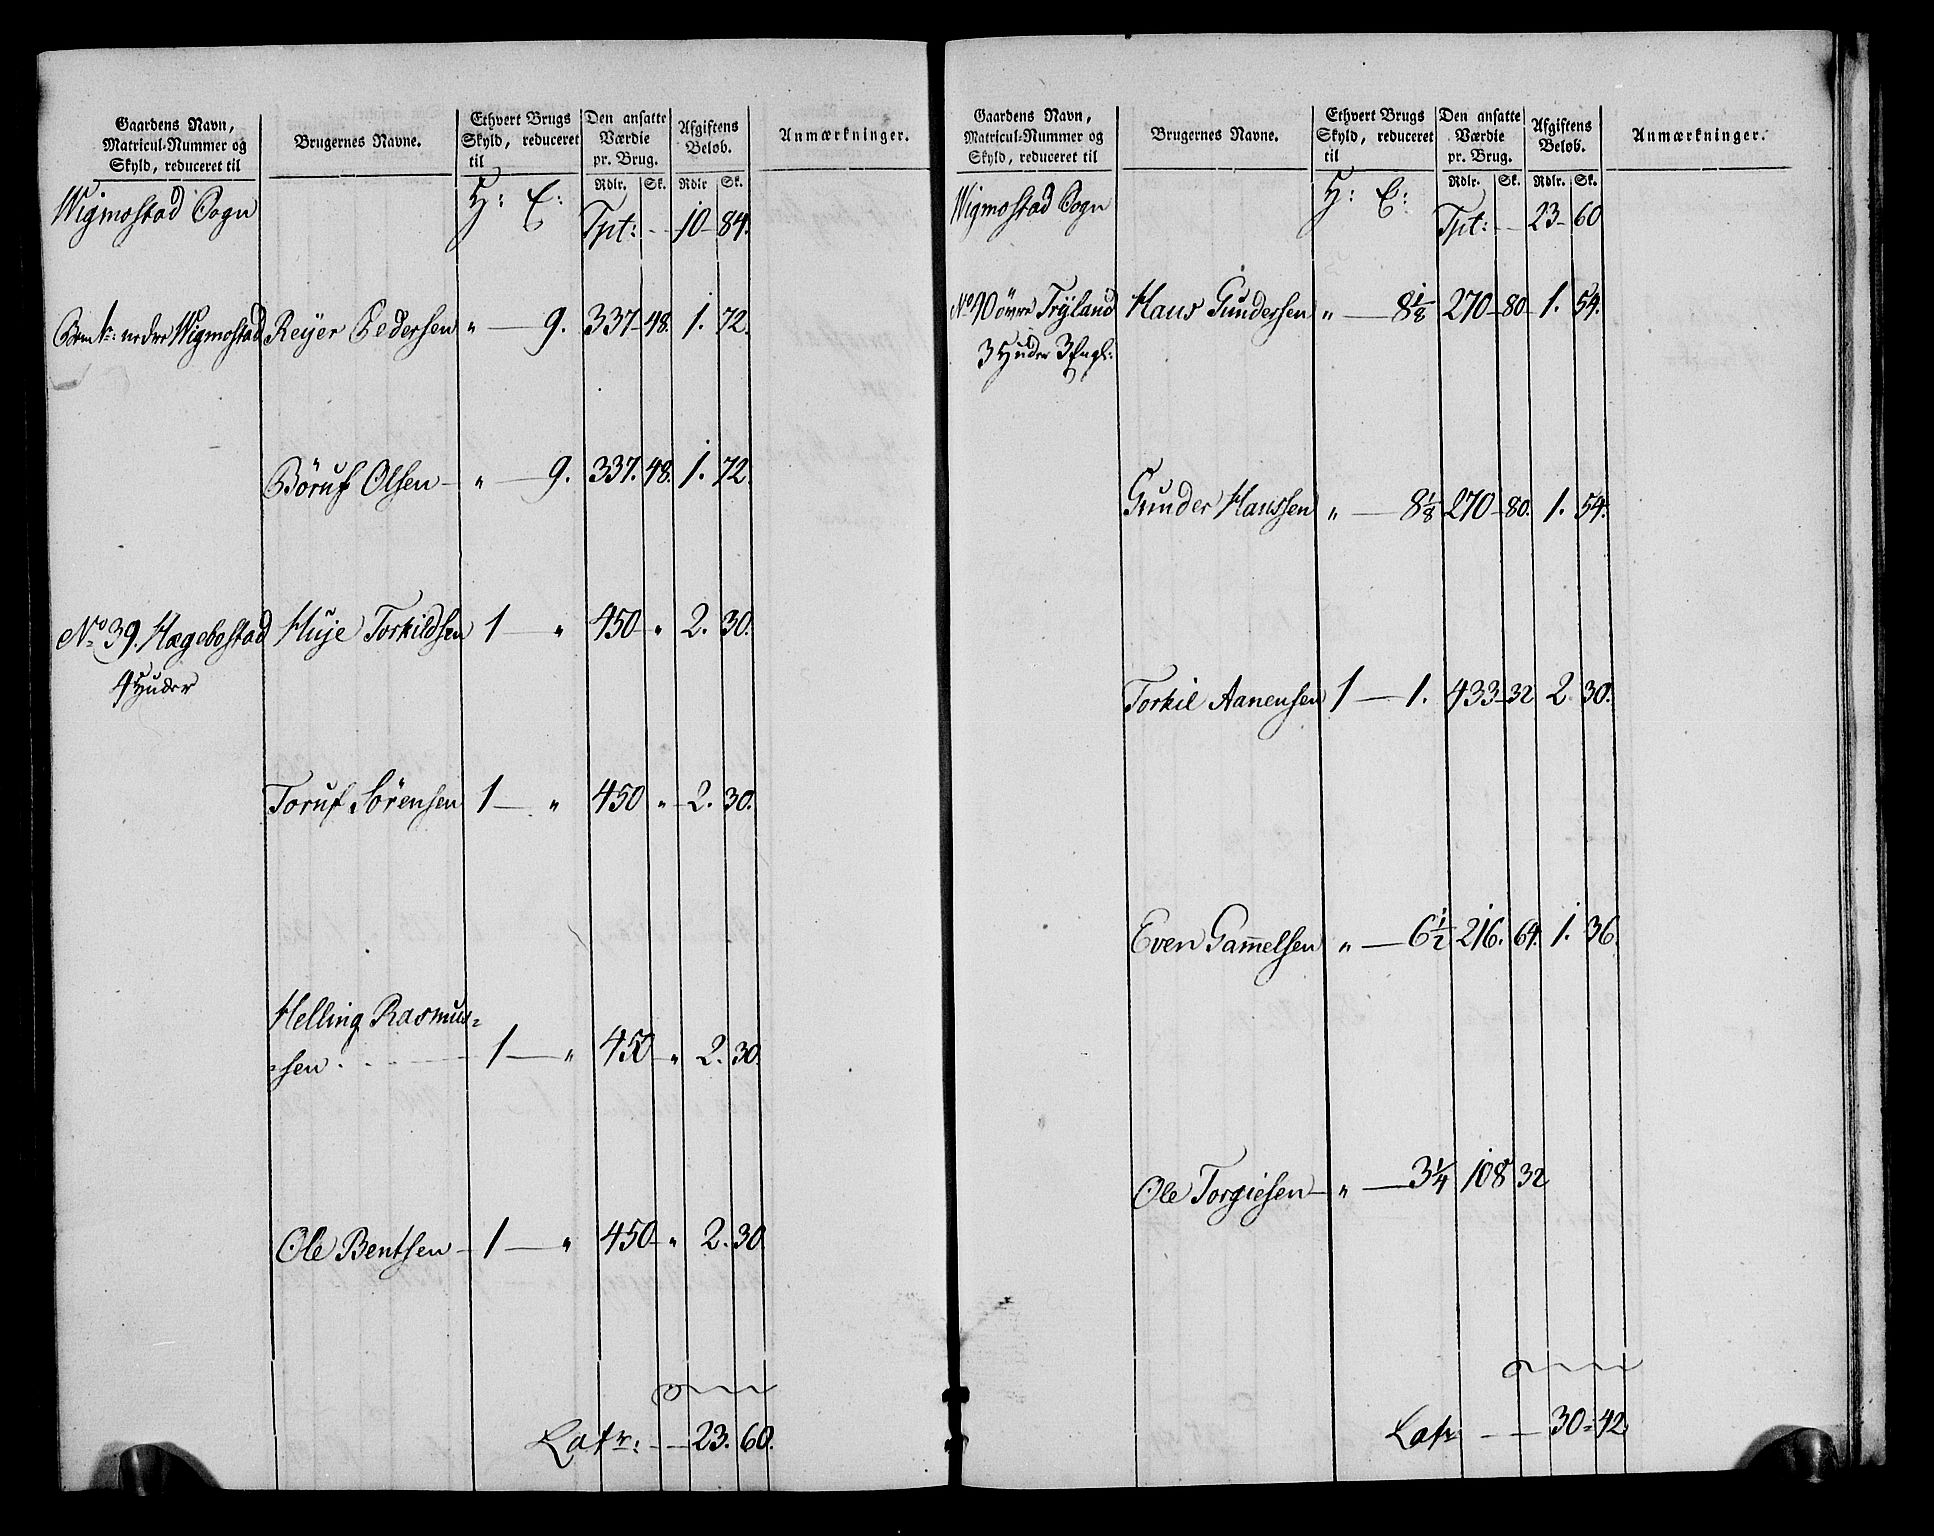 Gaardens Navn,
Matricul-Nummer og
Skyld, reduceret til
Brugernes Navne.
Ethvert Brugs
Skyld, reduceret
til
Den ansatte
Værdie
pr. Brug.
Afgiftens
Beløb.
Anmærkninger.
Rdlr. Sk. Rdlr Sk.
Wigmostad Sogn H: E: Tpt: 10 84.
nedre Wigmostad Reyer Pedersen " 9. 337 48. 1. 72.
Böruf Olsen " 9. 337. 48. 1. 72
No 39. Hægebostad Huje Torkildsen 1 " 450 " 2. 30.
4 Huder
Toruf Sörensen 1 " 450 " 2. 30.
Helling Rasmus=
=sen 1 " 450 " 2. 30.
Ole Bentsen 1 " 450 " 2. 30
Latr: 23. 60.
Gaardens Navn,
Matricul-Nummer og
Skyld, reduceret til
Brugernes Navne.
Ethvert Brugs
Skyld, reduceret
til
Den ansatte
Værdie
pr. Brug.
Afgiftens
Beløb.
Anmærkninger.
Rdlr. Sk. Rdlr. Sk.
Wigmostad Sogn H: E: Tpt: 23 60
No 40 övre Tryland Hans Gundersen " 8 1/8 270 80 1. 54.
3 Huder 3 Engl:
Gunder Hanssen " 8 1/8 270 80. 1. 54.
Torkil Aanensen 1 1. 433 32 2 30.
Even Gam̄elsen " 6 1/2 216. 64. 1. 36.
Ole Torgiesen " 3 1/4 108 32
Latr 30 = 42